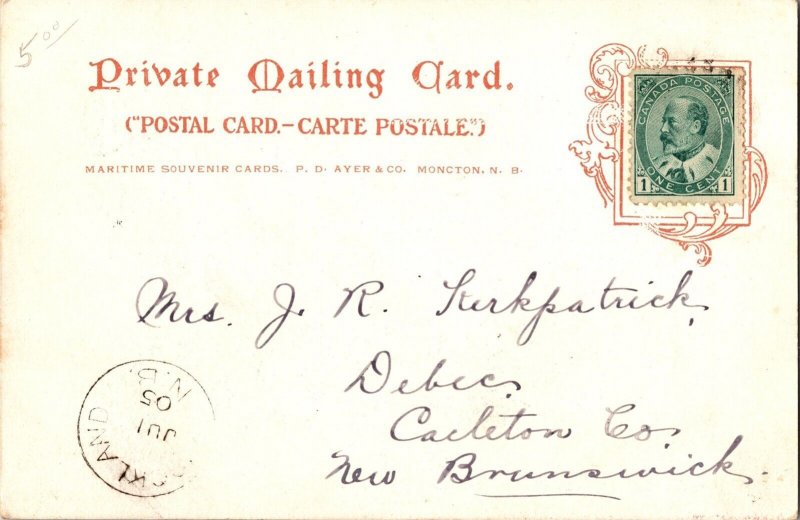 5.00
Private Mailing Card.
("POSTAL CARD.–CARTE POSTALE.")
MARITIME SOUVENIR CARDS. P. D. AYER & CO. MONCTON, N. B.
CANADA POSTAGE
1 ONE CENT 1
Mrs. J. R. Kirkpatrick,
Debec,
Carleton Co.
New Brunswick.
KLAND
JU 1
05
N.B.